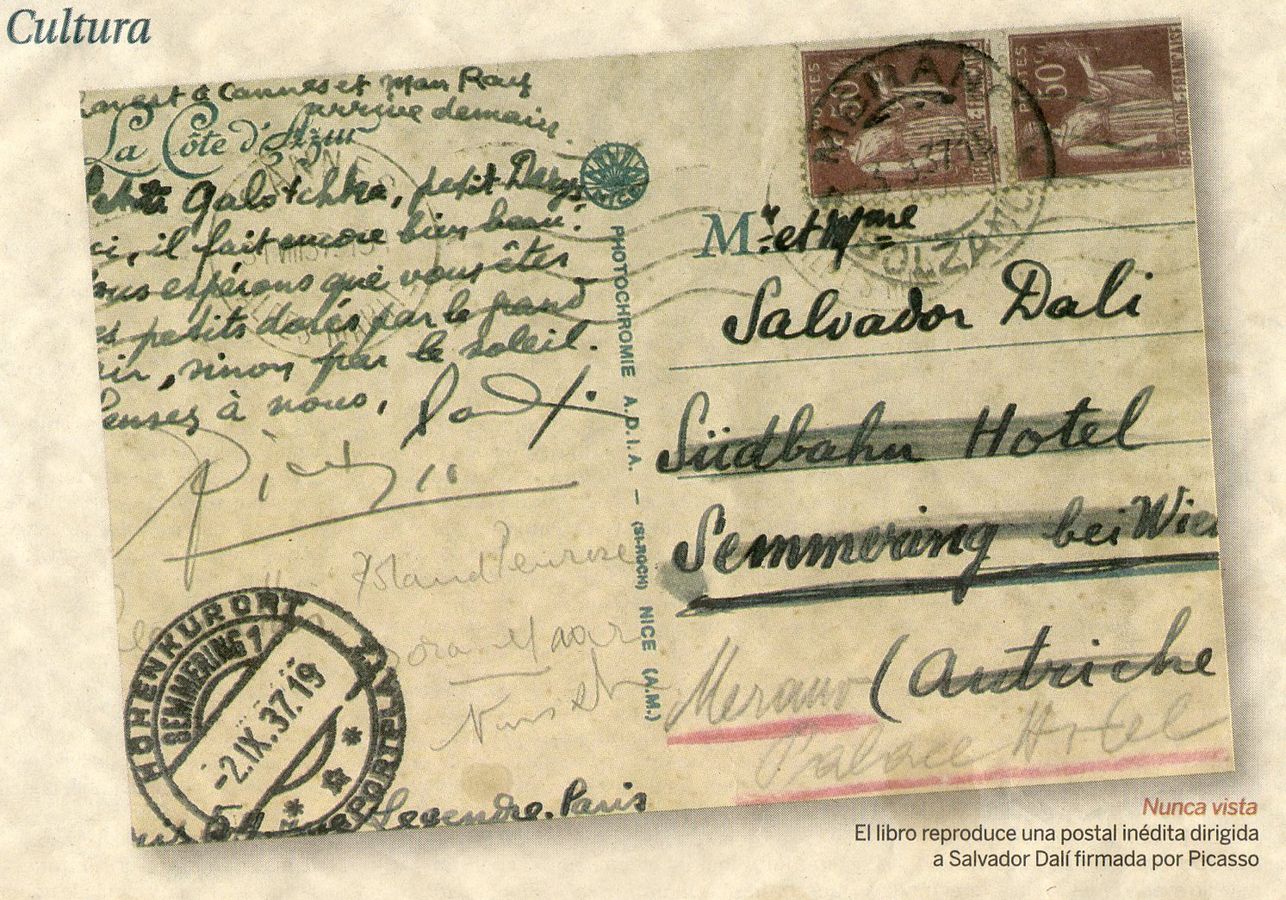 Cultura
à Cannes et Man Ray
arrive demain.
La Côte d'Azur
Galotchka, petit
ci, il fait encore bien beau.
ous espérons que vous êtes
es petits dorés par le grand
air, sinon par le soleil.
ensez à nous,
Picasso
Roland Penrose
Dora Maar
Nusch
HÖHENKURORT
SEMMERING 1
-2.IX.37.19
54, rue Legendre, Paris
PHOTOCHROMIE A.D.I.A. — (St-ROCH) NICE (A.M.)
POSTES
50c
MERAN
BOLZANO
50c
Mr et Mme
Salvador Dali
Südbahn Hotel
Semmering bei Wien
(Autriche
Merano
Palace Hotel
Nunca vista
El libro reproduce una postal inédita dirigida
a Salvador Dalí firmada por Picasso